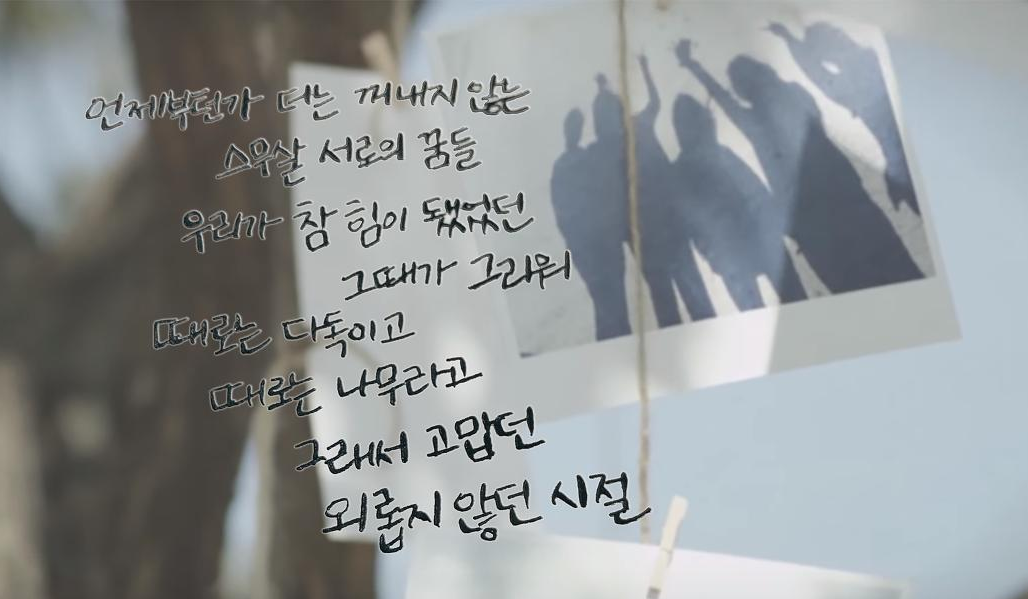 언제부턴가 더는 꺼내지 않는
스무살 서로의 꿈들
우리가 참 힘이 됐었던
그때가 그리워
때로는 다독이고
때로는 나무라고
그래서 고맙던
외롭지 않던 시절